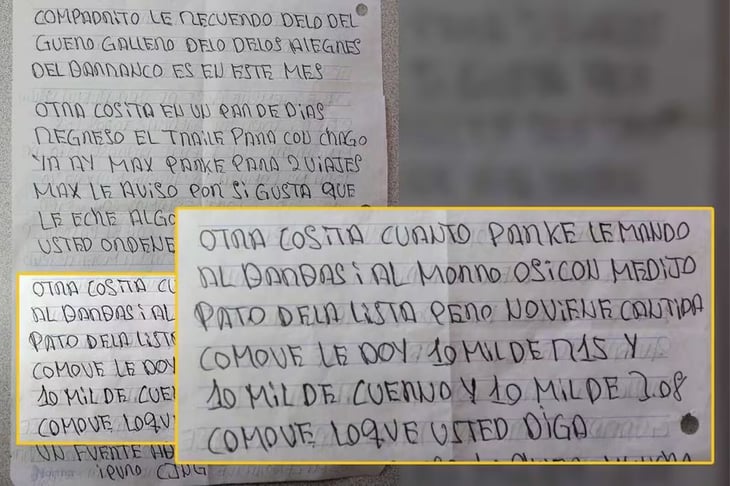 COMPADRITO LE RECUERDO DELO DEL
GUERO GALLERO DELO DELOS ALEGRES
DEL BARRANCO ES EN ESTE MES
OTRA COSITA EN UN PAR DE DIAS
REGRESO EL TRAILE PARA CON CHAGO
YA AY MAX PARKE PARA 2 VIAJES
MAX LE AVISO POR SI GUSTA QUE
LE ECHE ALGO
USTED ORDENE
OTRA COSITA CU
AL BARBAS i AL
PATO DELA LISTA
COMOVE LE DOY
10 MIL DE CUER
COMOVE LOQUE
UN FUERTE
iPURO CJNG
OTRA COSITA CUANTO PARKE LE MANDO
AL BARBAS i AL MORRO OSICON MEDIJO
PATO DELA LISTA PERO NOVIENE CANTIDA
COMOVE LE DOY 10 MIL DE R15 Y
10 MIL DE CUERNO Y 10 MIL DE 3.08
COMOVE LOQUE USTED DIGA